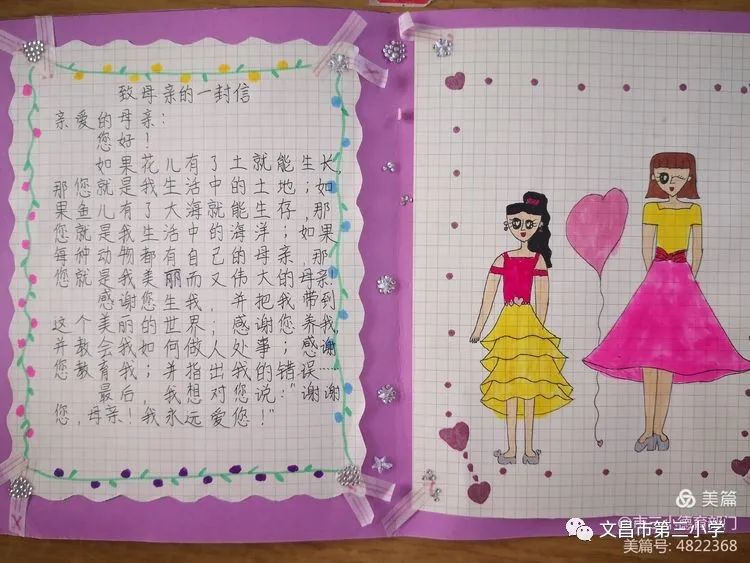 致母亲的一封信
亲爱的母亲：
您好！
如果花儿有了土就能生长，
那您就是我生活中的土地；如
果鱼儿有了大海就能生存，那
您就是我生活中的海洋；如果
每种动物都有自己的母亲，那
您就是我美丽而又伟大的母亲！
感谢您生我，并把我带到
这个美丽的世界；感谢您养我，
并教会我如何做人处事；感谢
您教育我；并指出我的错误……
最后，我想对您说："谢谢
您，母亲！我永远爱您！"
美篇
文昌市第三小学
美篇号: 4822368